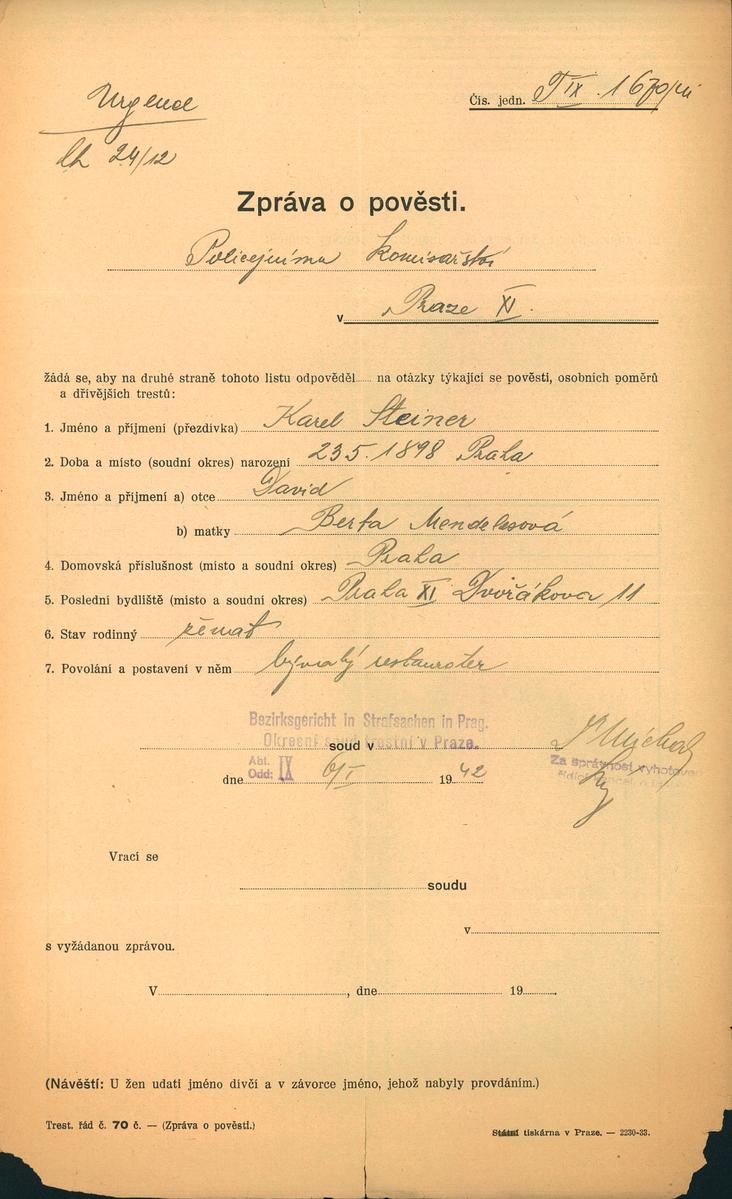 Urgence
Čís. jedn. T IX 1670/41
24/12
Zpráva o pověsti.
Policejnímu komisařství
v Praze XI.
žádá se, aby na druhé straně tohoto listu odpověděl...... na otázky týkající se pověsti, osobních poměrů
a dřívějších trestů:
1. Jméno a příjmení (přezdívka) Karel Steiner
2. Doba a místo (soudní okres) narození 23 5. 1898 Praha
3. Jméno a příjmení a) otce David
b) matky Berta Mendelesová
4. Domovská příslušnost (místo a soudní okres) Praha
5. Poslední bydliště (místo a soudní okres) Praha XI Dvořákova 11
6. Stav rodinný ženat
7. Povolání a postavení v něm bývalý restauratér
Bezirksgericht in Strafsachen in Prag.
Okresní soud trestní v Praze.
soud v
Abt. Odd: IX
dne 6/I 1942
Za správnost vyhotovení
Vrací se
soudu
v
s vyžádanou zprávou.
V, dne 19
(Návěští: U žen udati jméno dívčí a v závorce jméno, jehož nabyly provdáním.)
Trest. řád č. 70 č. — (Zpráva o pověsti.)
Státní tiskárna v Praze. — 2230-33.